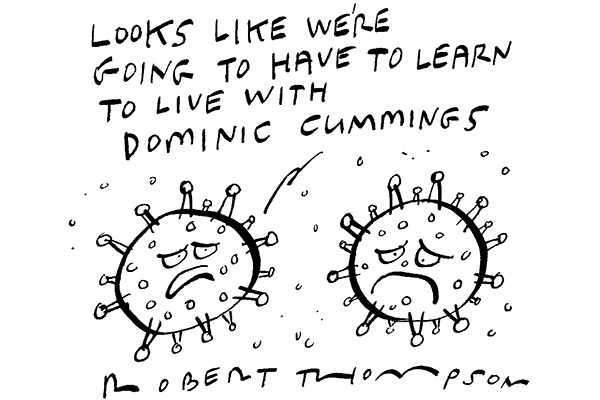 LOOKS LIKE WE'RE
GOING TO HAVE TO LEARN
TO LIVE WITH
DOMINIC CUMMINGS
ROBERT THOMPSON